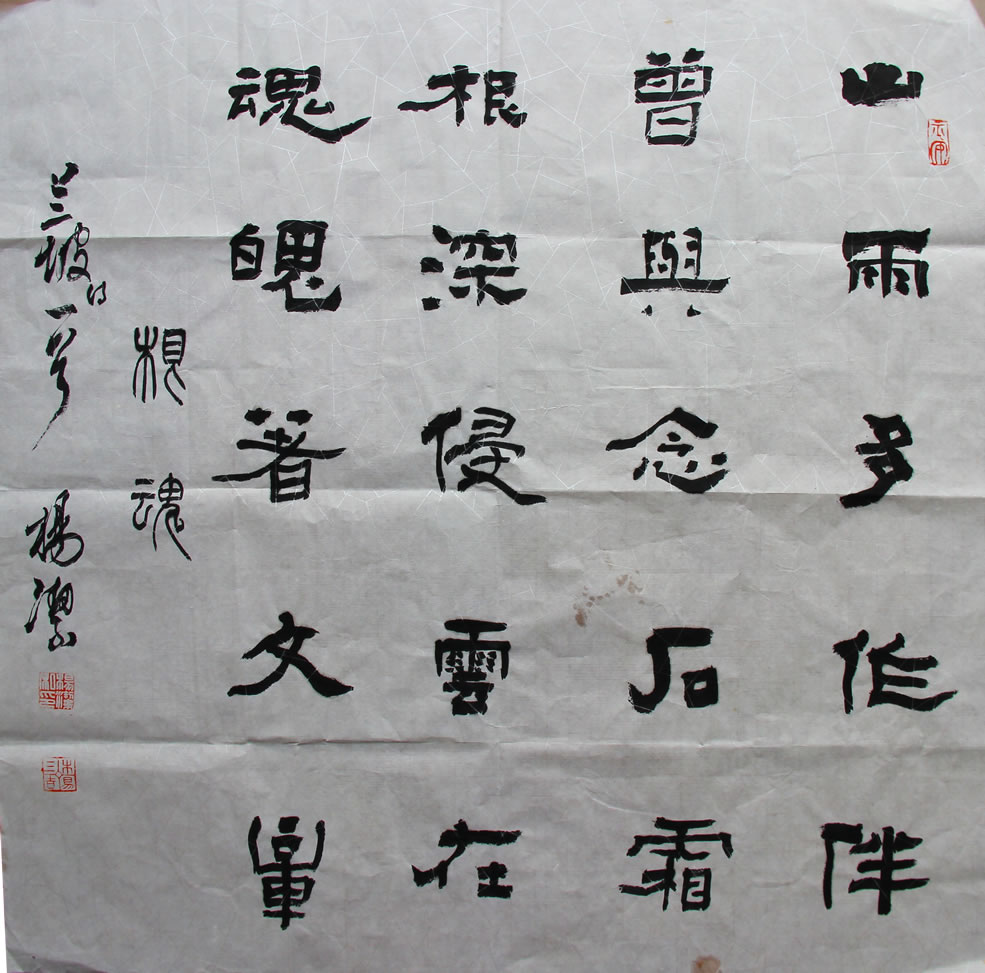 山雨多作伴
曾與念石霜
根深侵雲在
魂魄著文章
根魂
蘭坡一号 楊潔